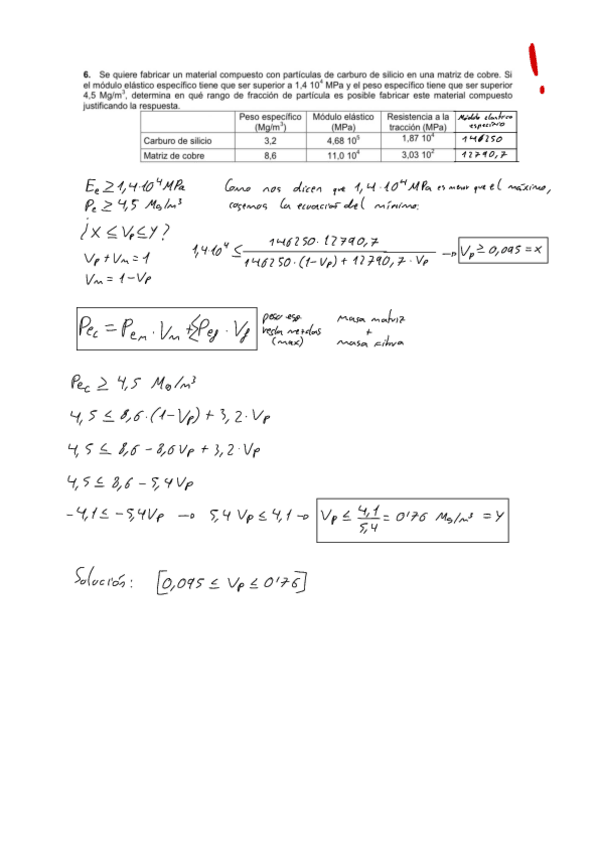 6. Se quiere fabricar un material compuesto con partículas de carburo de silicio en una matriz de cobre. Si
el módulo elástico específico tiene que ser superior a 1,4 10⁴ MPa y el peso específico tiene que ser superior
4,5 Mg/m³, determina en qué rango de fracción de partícula es posible fabricar este material compuesto
justificando la respuesta.
Peso específico (Mg/m³) Módulo elástico (MPa) Resistencia a la tracción (MPa) Módulo elastico específico
Carburo de silicio 3,2 4,68 10⁵ 1,87 10⁴ 146250
Matriz de cobre 8,6 11,0 10⁴ 3,03 10² 12790,7
!
Ee ≥ 1,4·10⁴ MPa Como nos dicen que 1,4·10⁴ MPa es menor que el máximo,
Pe ≥ 4,5 Mg/m³ cogemos la ecuacion del mínimo:
¿X ≤ Vp ≤ Y?
Vp + Vm = 1
Vm = 1 - Vp
1,4·10⁴ ≤ 146250 · 12790,7 / 146250·(1-Vp) + 12790,7·Vp → Vp ≥ 0,095 = X
Pec = Pem · Vm + ΣPef · Vf
peso esp
regla mezclas
(max)
masa matriz
+
masa fibra
Pec ≥ 4,5 Mg/m³
4,5 ≤ 8,6·(1-Vp) + 3,2·Vp
4,5 ≤ 8,6 - 8,6Vp + 3,2·Vp
4,5 ≤ 8,6 - 5,4Vp
-4,1 ≤ -5,4Vp → 5,4 Vp ≤ 4,1 → Vp ≤ 4,1/5,4 = 0'76 Mg/m³ = Y
Solución: [0,095 ≤ Vp ≤ 0'76]